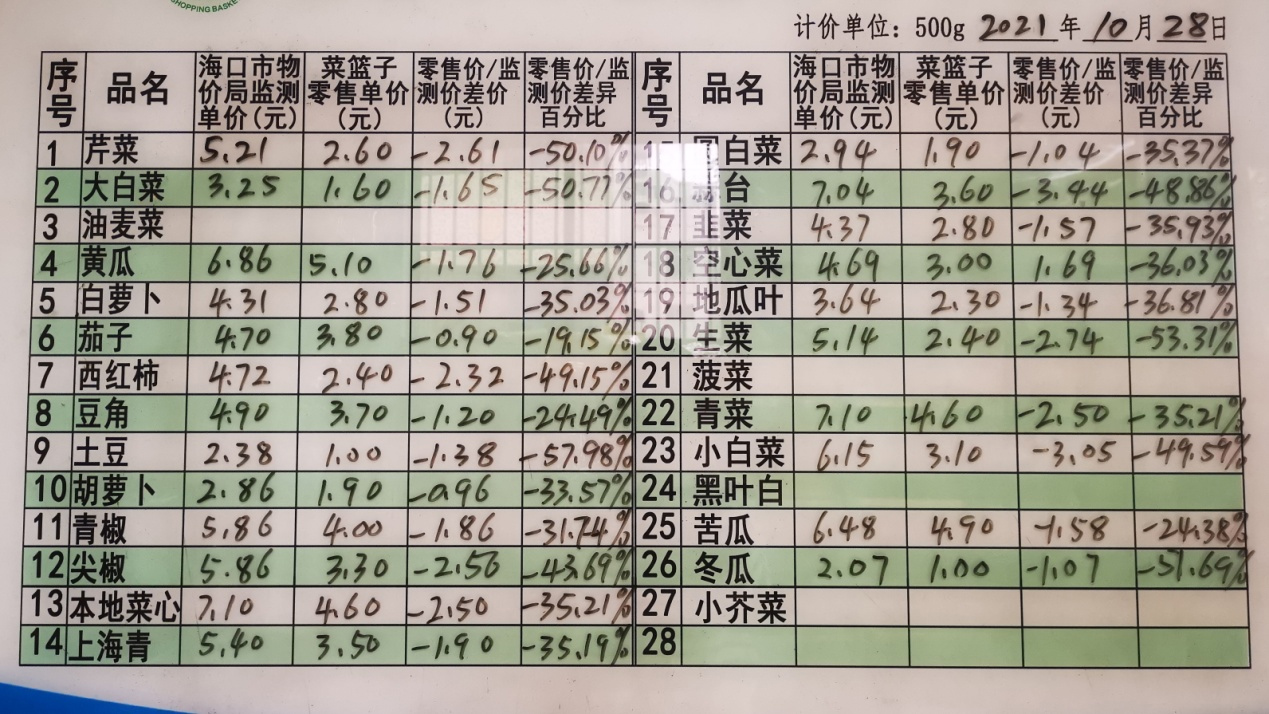 SHOPPING BASKE
计价单位：500g 2021年10月28日
序号 品名 海口市物价局监测单价(元) 菜篮子零售单价(元) 零售价/监测价差价(元) 零售价/监测价差异百分比 序号 品名 海口市物价局监测单价(元) 菜篮子零售单价(元) 零售价/监测价差价(元) 零售价/监测价差异百分比
1 芹菜 5.21 2.60 -2.61 -50.10% 白菜 2.94 1.90 -1.04 -35.37%
2 大白菜 3.25 1.60 -1.65 -50.77% 16 台 7.04 3.60 -3.44 -48.86%
3 油麦菜 17 韭菜 4.37 2.80 -1.57 -35.93%
4 黄瓜 6.86 5.10 -1.76 -25.66% 18 空心菜 4.69 3.00 1.69 -36.03%
5 白萝卜 4.31 2.80 -1.51 -35.03% 19 地瓜叶 3.64 2.30 -1.34 -36.81%
6 茄子 4.70 3.80 -0.90 -19.15% 20 生菜 5.14 2.40 -2.74 -53.31%
7 西红柿 4.72 2.40 -2.32 -49.15% 21 菠菜
8 豆角 4.90 3.70 -1.20 -24.49% 22 青菜 7.10 4.60 -2.50 -35.21%
9 土豆 2.38 1.00 -1.38 -57.98% 23 小白菜 6.15 3.10 -3.05 -49.59%
10 胡萝卜 2.86 1.90 -0.96 -33.57% 24 黑叶白
11 青椒 5.86 4.00 -1.86 -31.74% 25 苦瓜 6.48 4.90 -1.58 -24.38%
12 尖椒 5.86 3.30 -2.56 -43.69% 26 冬瓜 2.07 1.00 -1.07 -51.69%
13 本地菜心 7.10 4.60 -2.50 -35.21% 27 小芥菜
14 上海青 5.40 3.50 -1.90 -35.19% 28